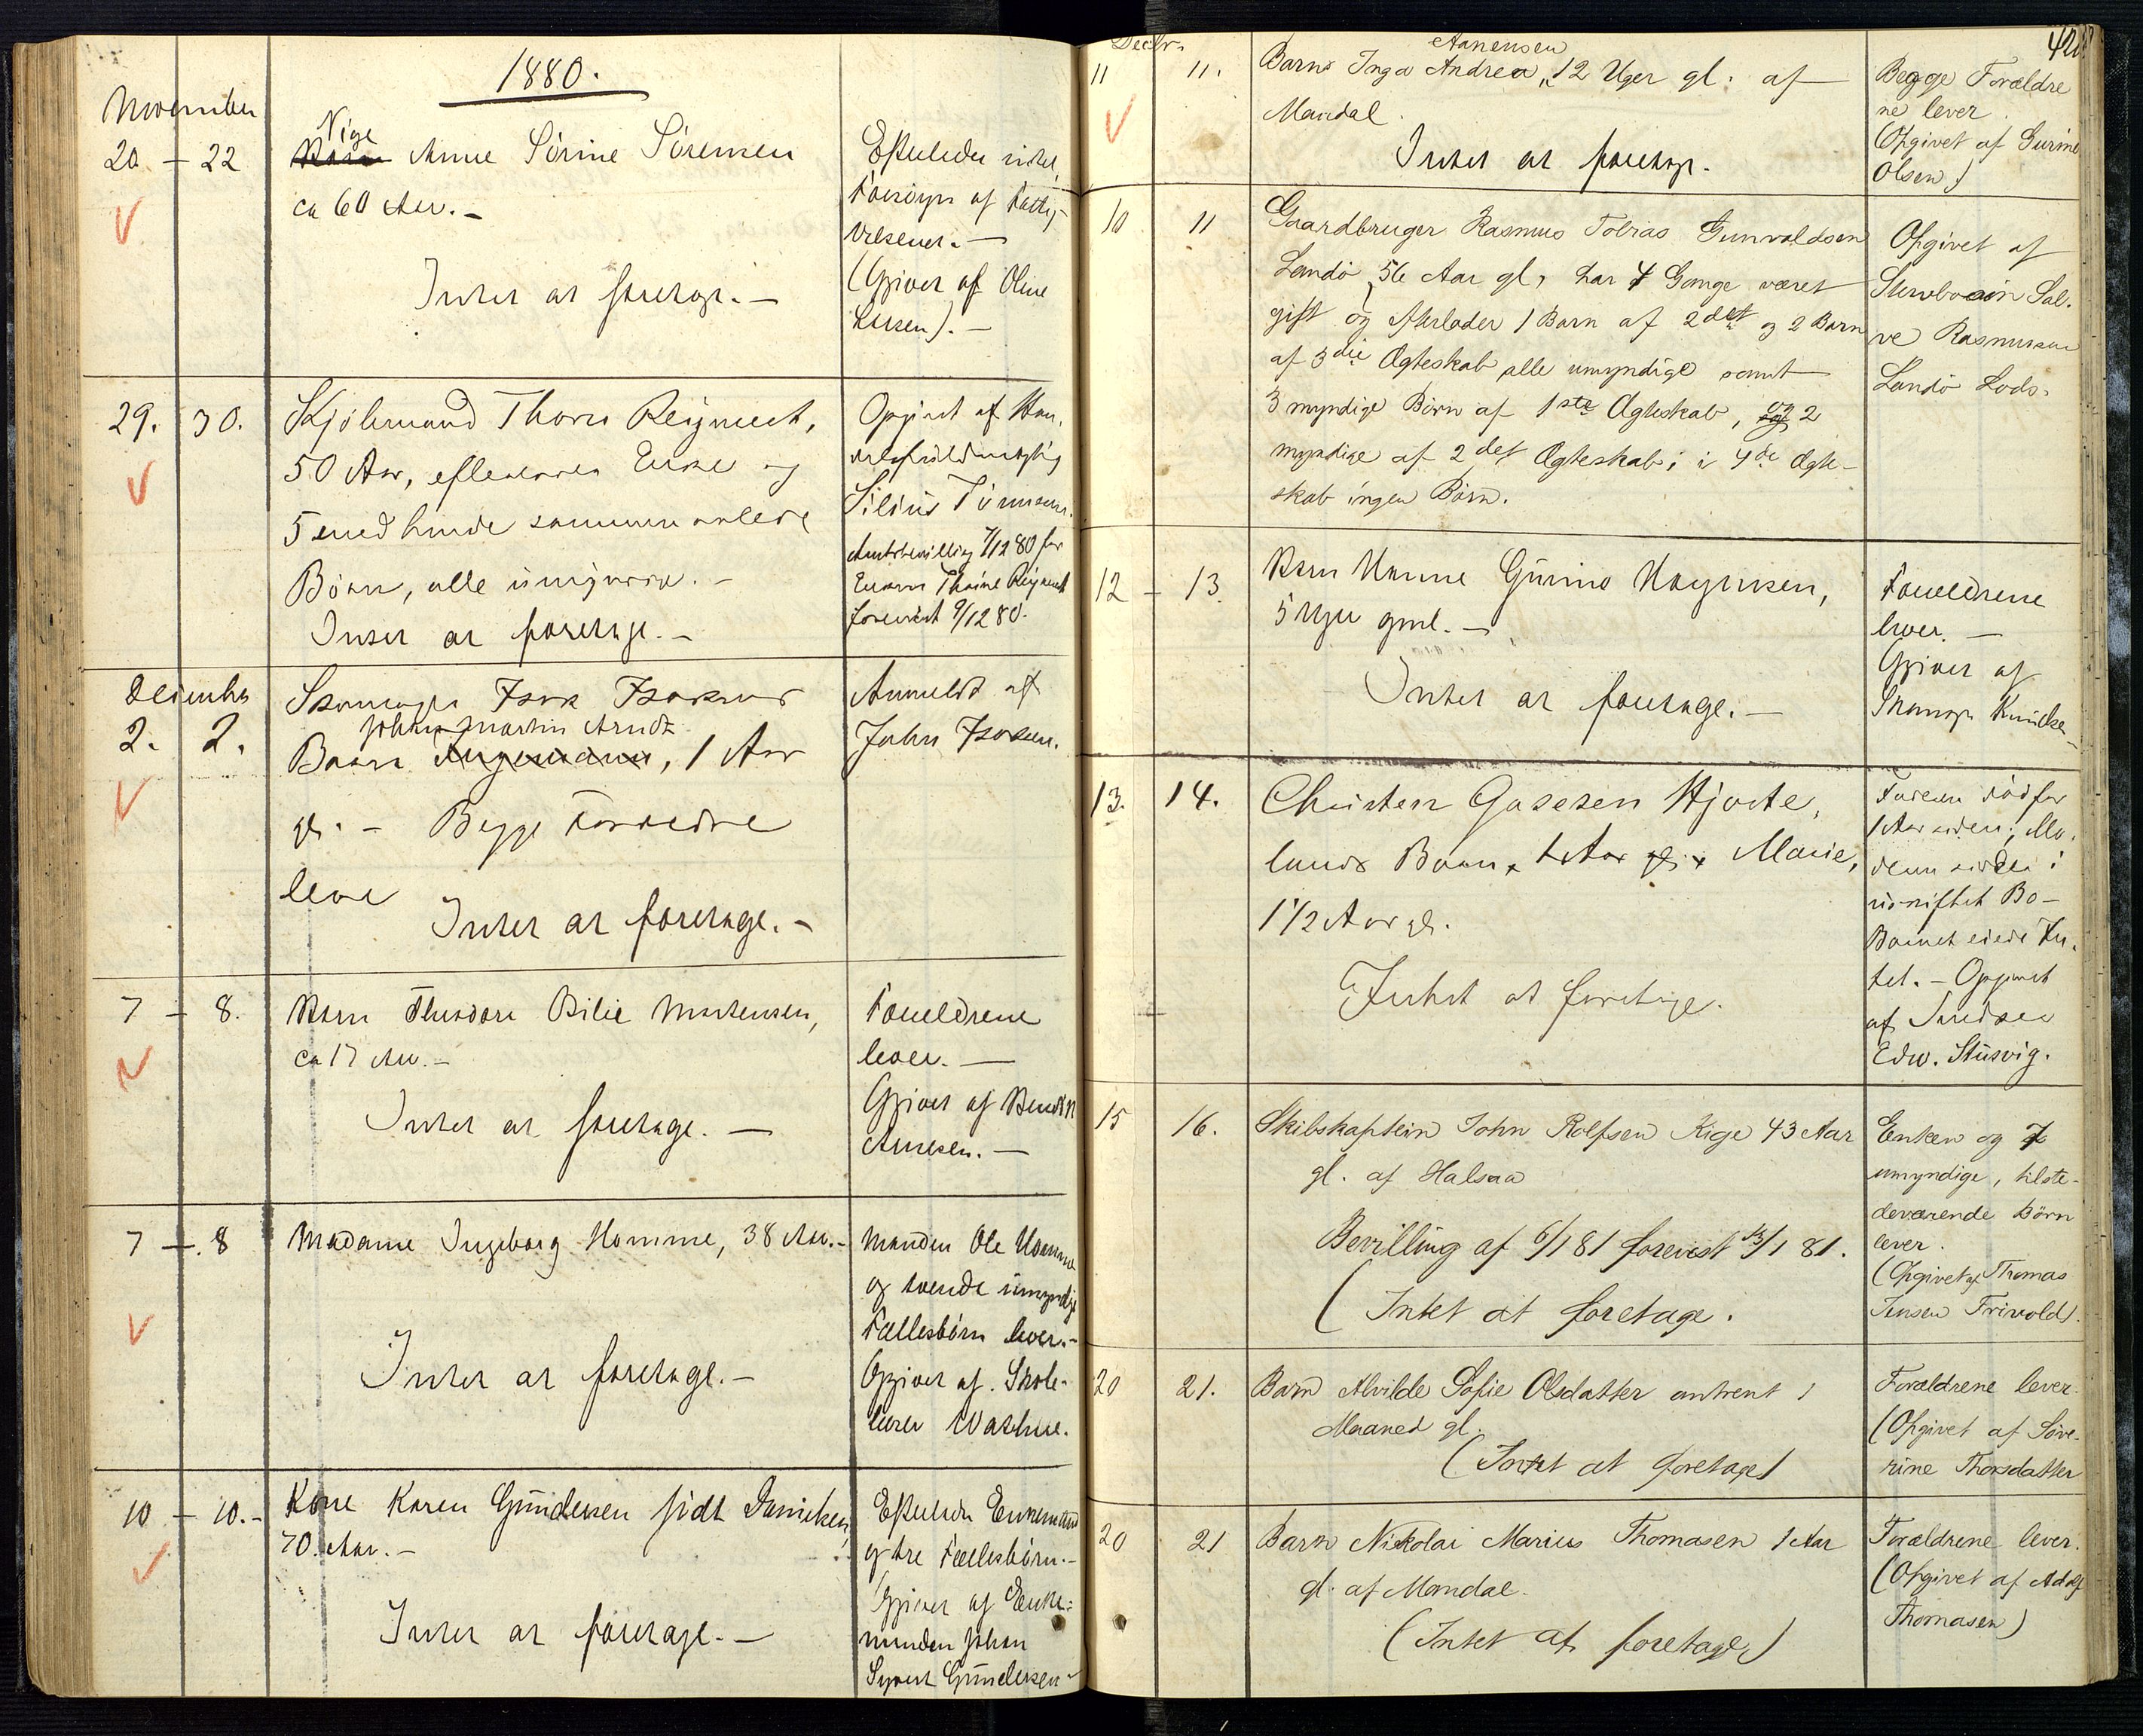 1880.
November
20 - 22
Pige
Barn Anne Sörine Sörensen
ca 60 Aar. -
Intet at foretage. -
Efterlader intet,
Forsörges af Fattig-
væsenet. -
(Opgivet af Oline
Larsen). -
29. 30.
Thomas
50 Aar, efterlader Enke og
5 med hende sammenavlede
Börn, alle umyndige. -
Intet at foretage. -
Opgivet af
Amtsbevilling 7/12 80 for
Enken
forevist 9/12 80.
December
2. 2.
Skomager Isak Isaksens
Johan Martin Arndt
Barn Ingemann, 1 Aar
gl. - Begge Forældre
leve
Intet at foretage. -
Anmeldt af
John Isaksen.
7 - 8.
Barn Theodore Mortensen,
ca 17 Aar. -
Intet at foretage. -
Forældrene
lever. -
Opgivet af
7 - 8
Madame Ingeborg Homme, 38 Aar. -
Intet at foretage. -
Manden Ole Homme
og tvende umyndige
Fællesbörn lever. -
Opgivet af Skole-
lærer
10 - 10. -
Kone Karen Gundersen födt Danielsen,
70 Aar. -
Intet at foretage. -
Efterlader Enkemand
og tre Fællesbörn. -
Opgivet af Enke-
manden Johan
Syvert Gundersen -
Decbr.
11 11.
Aanensen
Barn Inga Andrea, 12 Uger gl. af
Mandal.
Intet at foretage.
Begge Forældre
ne lever.
(Opgivet af Gurine
Olsen)
10 11
Gaardbruger Rasmus Tobias Gunvaldsen
Landö, 56 Aar gl, har 4 Gange været
gift og efterlader 1 Barn af 2det og 2 Barn
af 3die Ægteskab alle umyndige samt
3 myndige Börn af 1ste Ægteskab, og 2
myndige af 2det Ægteskab; i 4de Ægte-
skab ingen Börn.
Opgivet af
Stervboen Sal-
ve Rasmussen
Landö Lods.
12 - 13
Barn Hanne Gurine
5 Uger gml. -
Intet at foretage. -
Forældrene
lever. -
Opgivet af
13. 14.
Christen Hjorte-
lunds Barn, 1 Aar gl. Marie,
1 1/2 Aar gl.
Intet at foretage.
Faderen död for
1 Aar siden; Mo-
deren sidder i
uskiftet Bo -
Barnet eiede In-
tet. - Opgivet
af
Edw. Stusvig.
15 16.
Skibskaptein John Rolfsen Kige 43 Aar
gl. af Halsaa
Bevilling af 6/1 81 forevist 13/1 81.
(Intet at foretage.
Enken og 7
umyndige, tilste-
deværende Börn
lever.
(Opgivet af Thomas
Jensen Frivold)
20 21.
Barn Alvilde Sofie Olsdatter omtrent 1
Maaned gl.
(Intet at foretage)
Forældrene lever.
(Opgivet af Söve-
rine Thorsdatter
20 21
Barn Nikolai Marius Thomasen 1 Aar
gl. af Mandal.
(Intet at foretage)
Forældrene lever.
(Opgivet af Adolf
Thomasen)